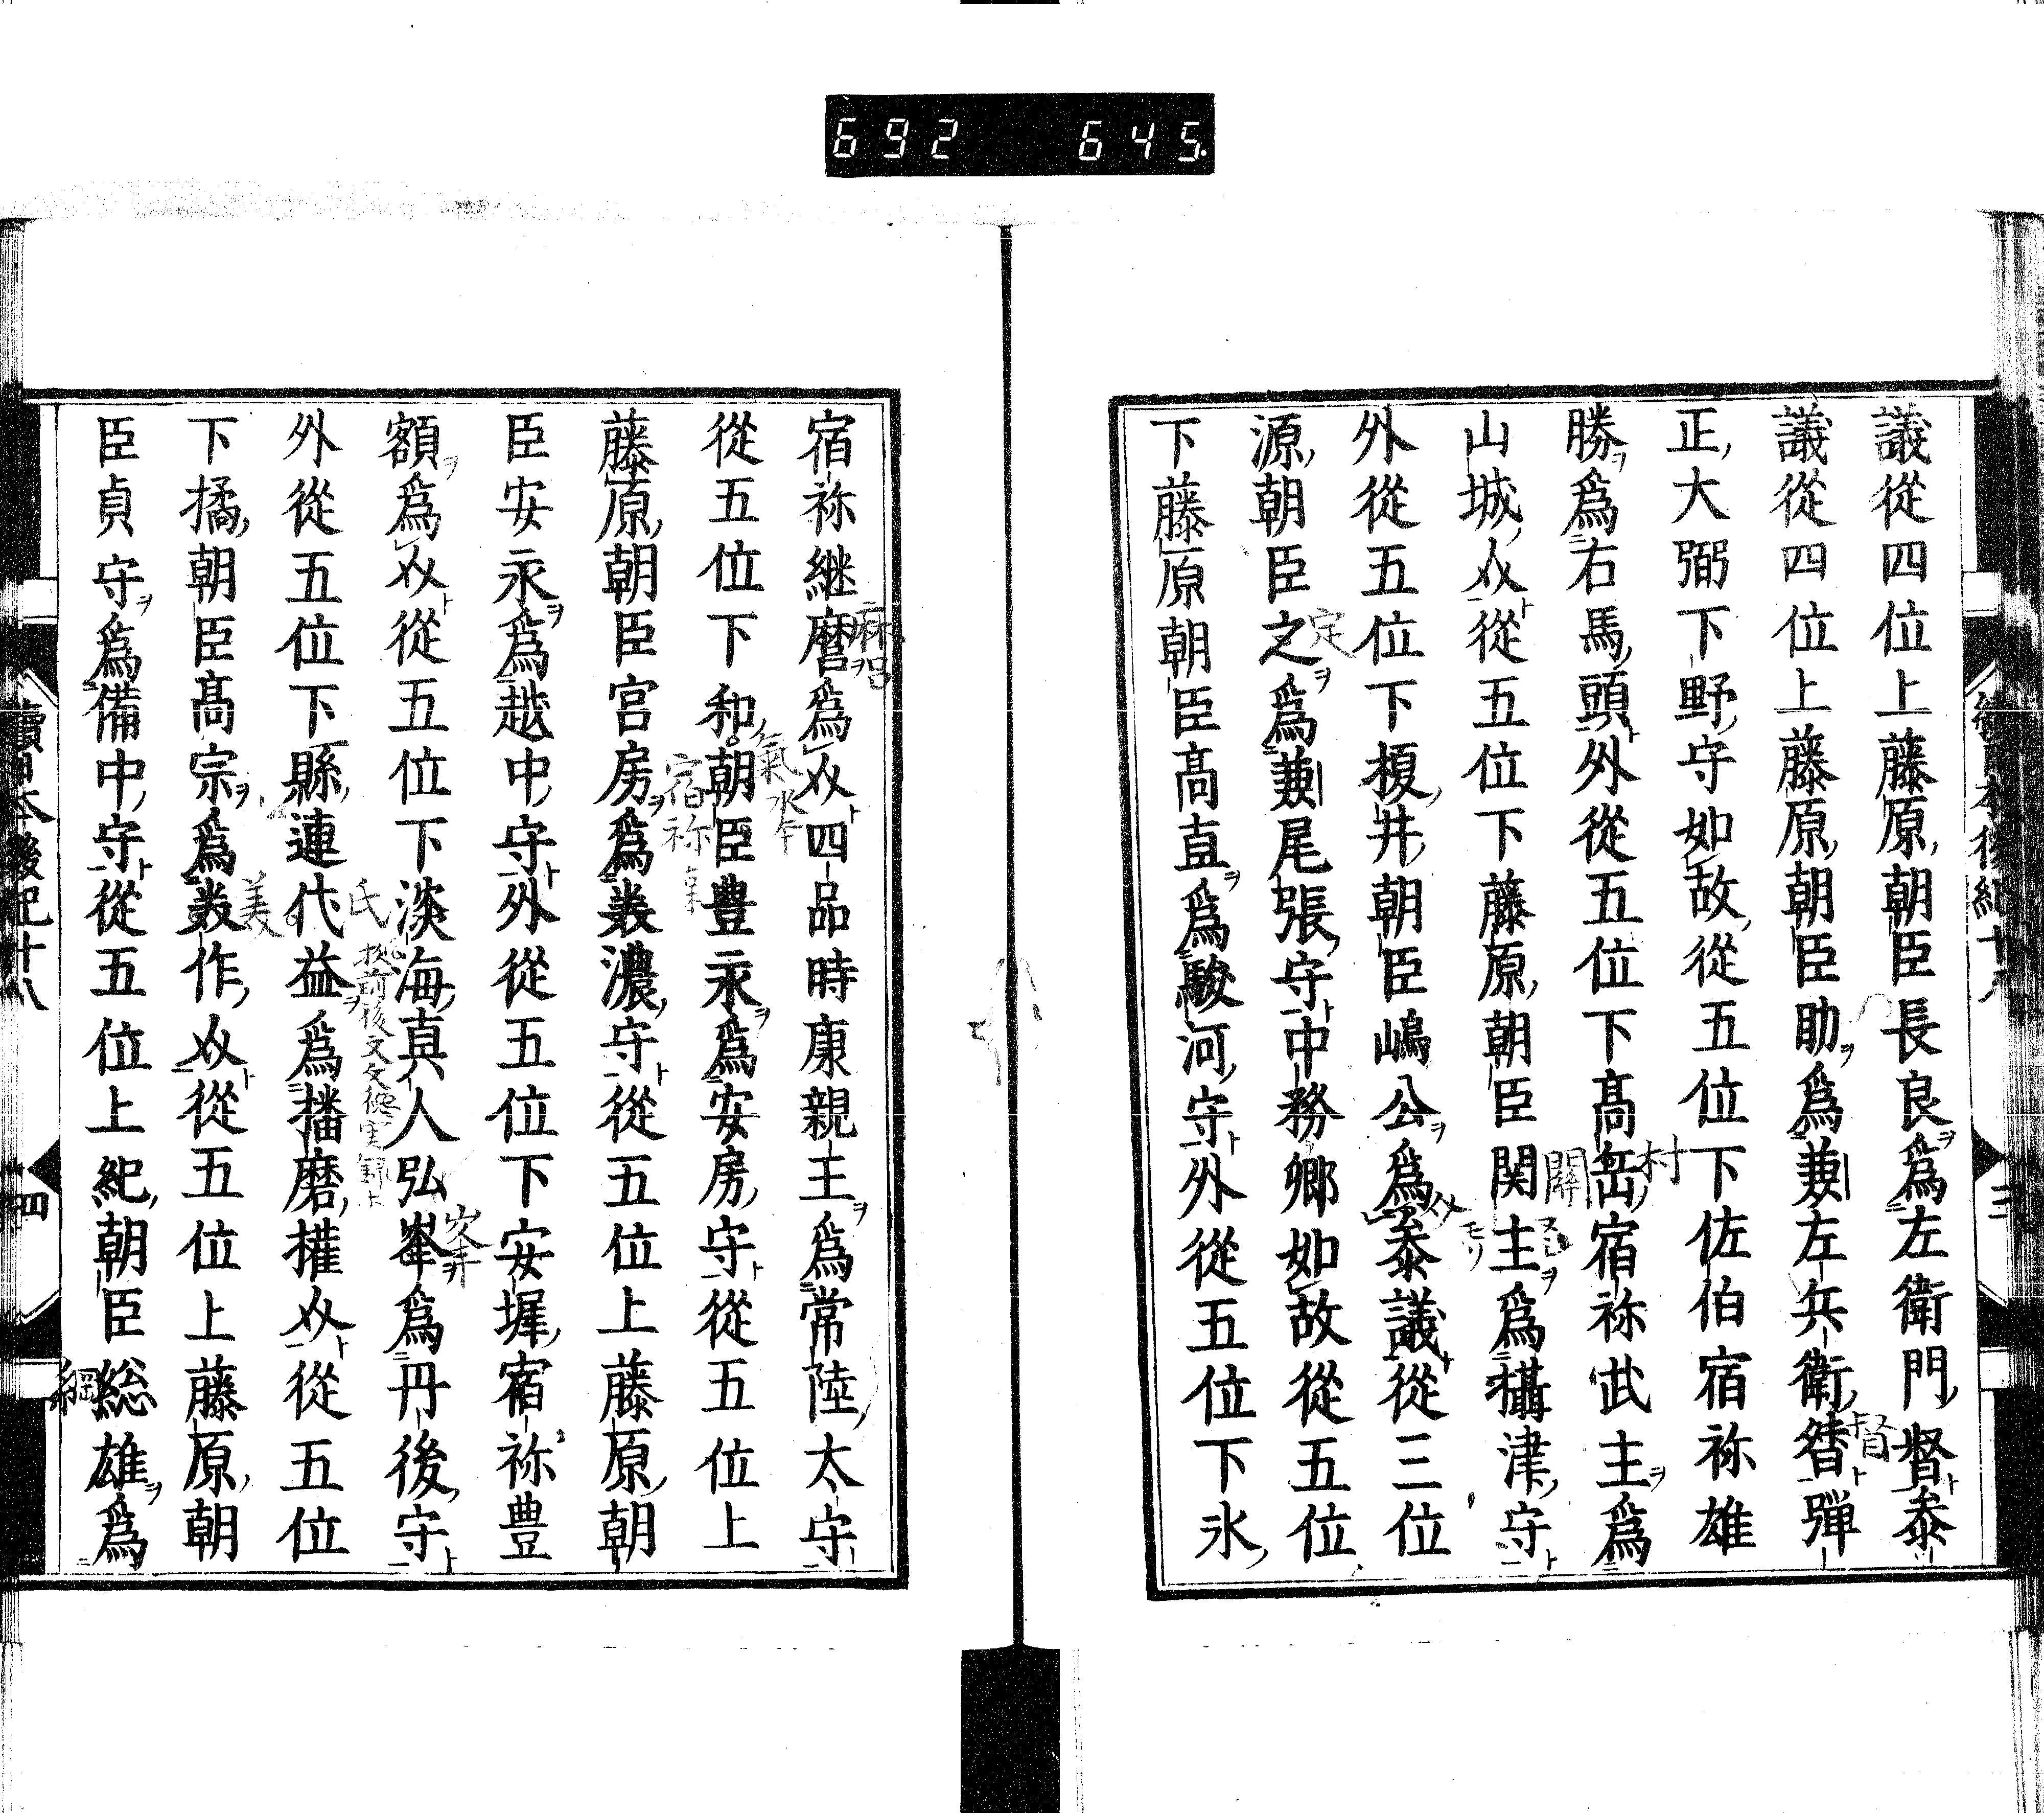 692 645.
議從四位上藤原朝臣長良爲左衛門督叅
議從四位上藤原朝臣助爲兼左兵衛督彈
正大弼下野守如故從五位下佐伯宿祢雄
勝爲右馬頭外從五位下髙岳宿祢武主爲
山城从從五位下藤原朝臣関主爲攝津守
外從五位下榎井朝臣嶋公爲叅議從三位
源朝臣之爲兼尾張守中務卿如故從五位
下藤原朝臣髙直爲駿河守外從五位下氷
宿祢継麿爲从四品時康親王爲常陸太守
從五位下和朝臣豊永爲安房守從五位上
藤原朝臣宮房爲義濃守從五位上藤原朝
臣安永爲越中守外從五位下安墀宿祢豊
額爲从從五位下淡海真人弘峯爲丹後守
外從五位下縣連代益爲播磨權从從五位
下橘朝臣髙宗爲義作从從五位上藤原朝
臣貞守爲備中守從五位上紀朝臣総雄爲
續日本後紀十八
四